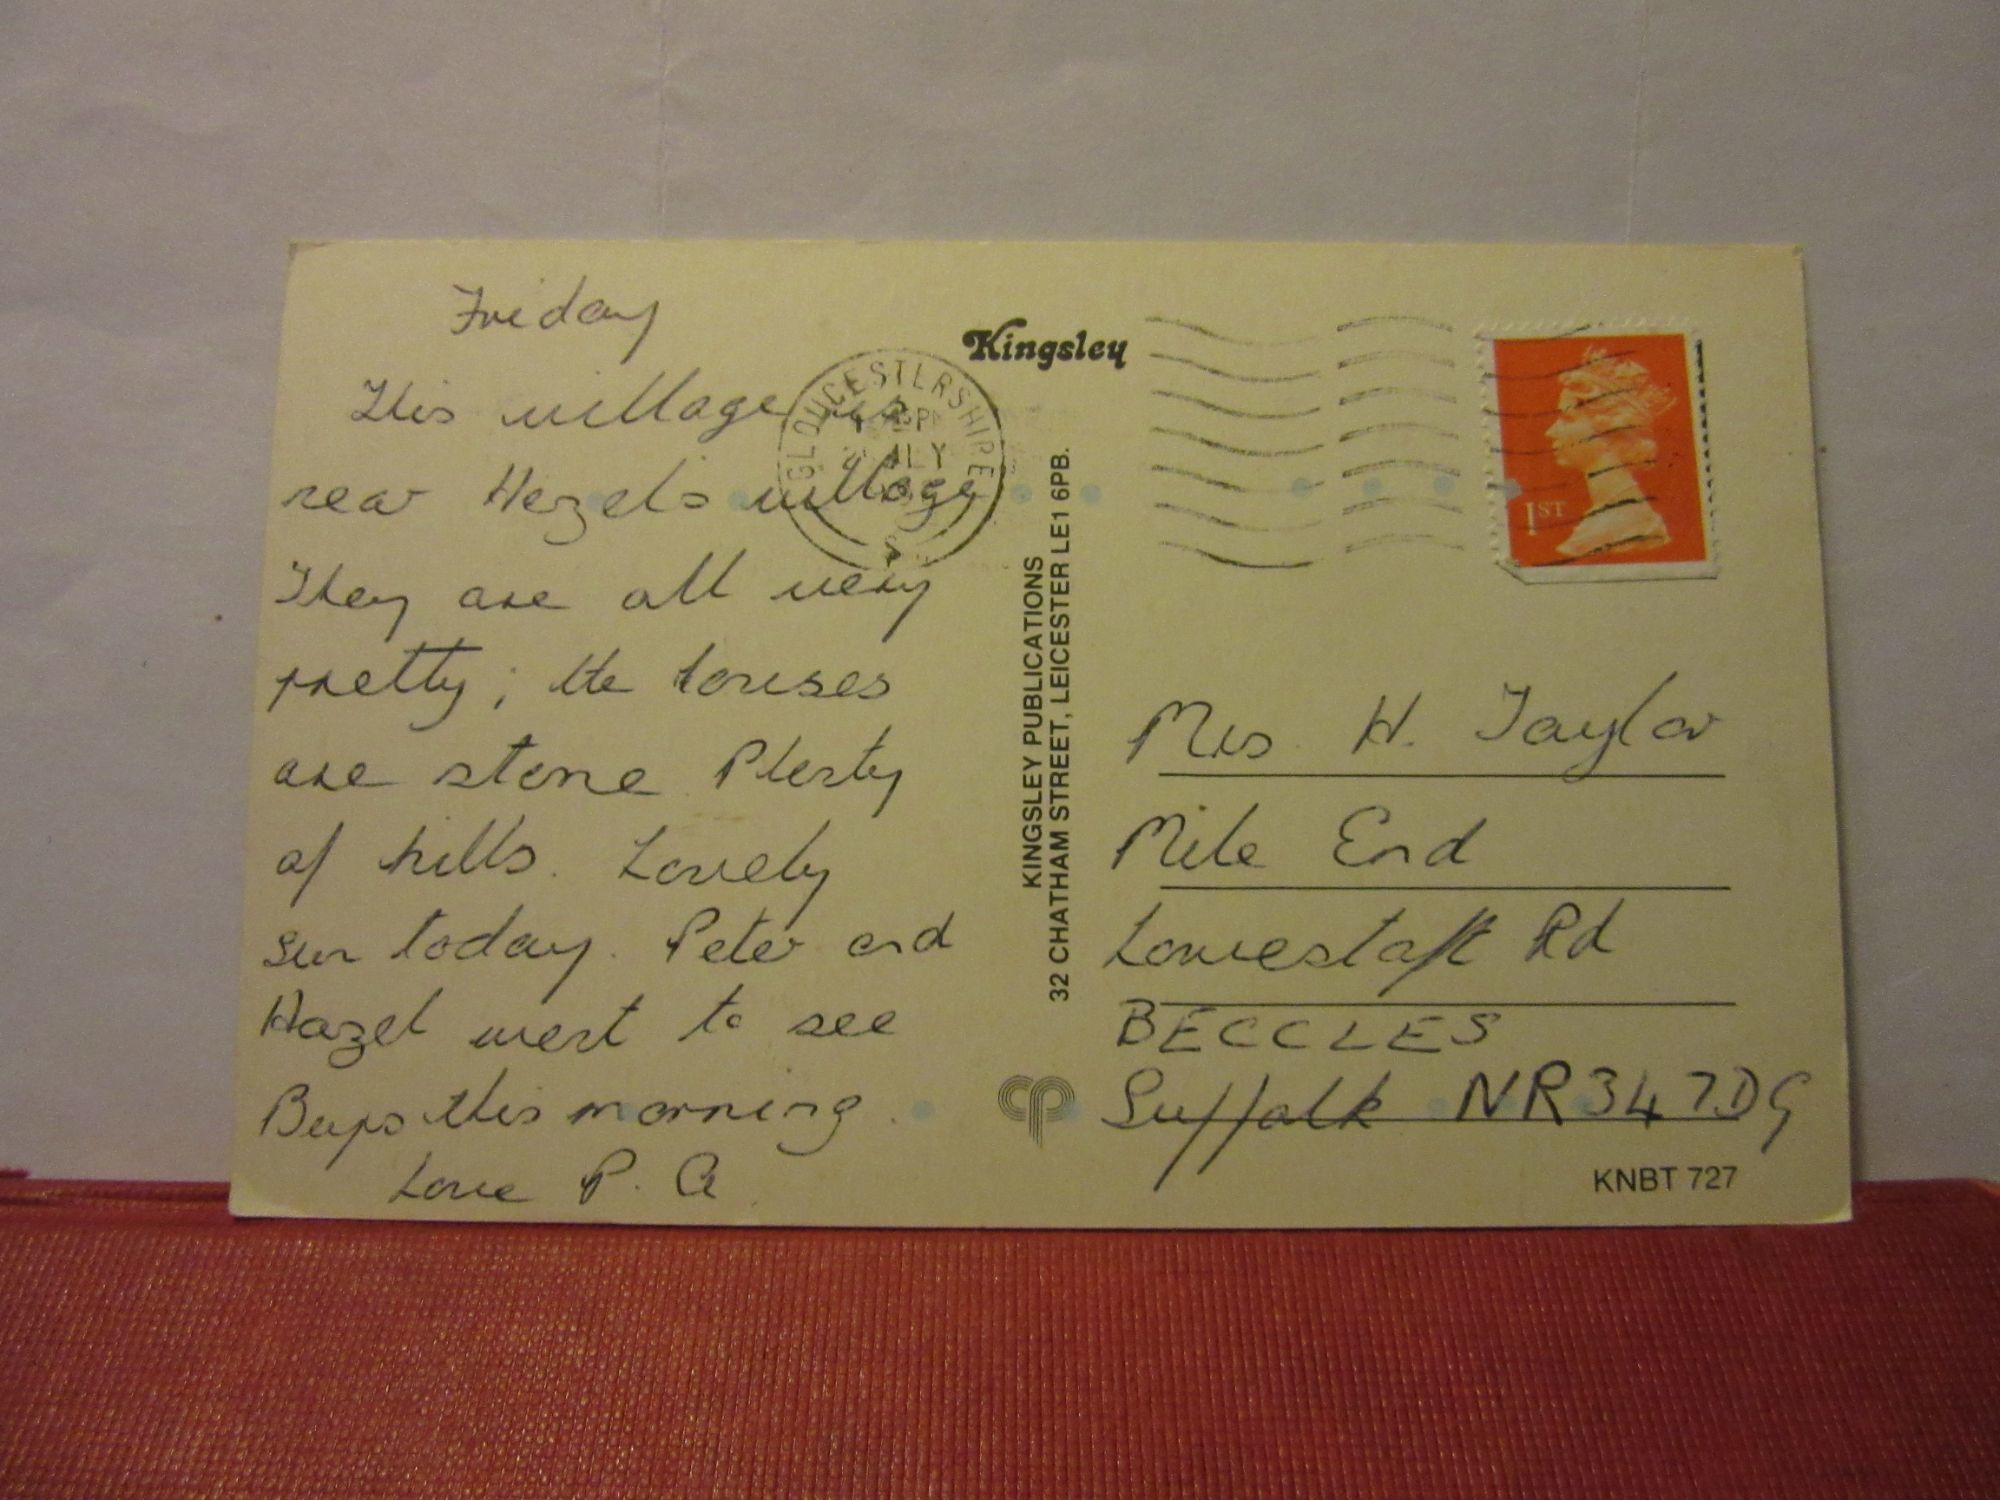 Friday
This village is
near Hazel's village
They are all very
pretty; the houses
are stone Plenty
of hills. Lovely
sun today. Peter and
Hazel went to see
Bups this morning.
Love P. G
Kingsley
GLOUCESTERSHIRE
JLY
KINGSLEY PUBLICATIONS
32 CHATHAM STREET, LEICESTER LE1 6PB.
1ST
Mrs. H. Taylor
Mile End
Lowestoft Rd
BECCLES
Suffolk NR34 7DG
KNBT 727